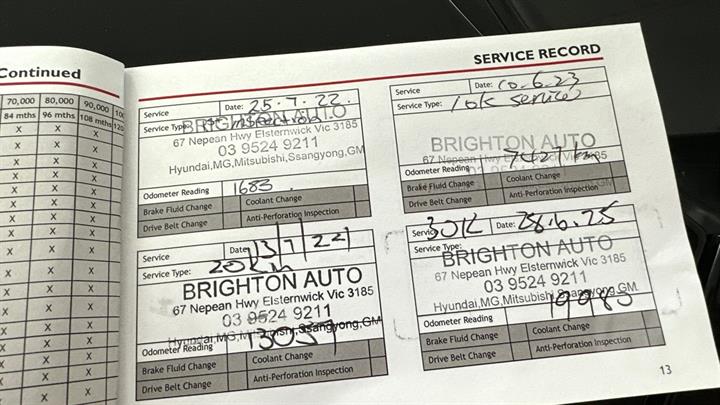 Continued
70,000 80,000 90,000
84 mths 96 mths 108 mths 120
X X X
X X X
X X X
X X X
X X X
X X X
X X X
X X X
X X X
X X X
X X X
X X X
X X X
X X X
X X X
X X
SERVICE RECORD
Service Date: 25.7.22.
Service Type: 1st inspection
BRIGHTON AUTO
67 Nepean Hwy Elsternwick Vic 3185
03 9524 9211
Hyundai,MG,Mitsubishi,Ssangyong,GM
Odometer Reading 1683.
Brake Fluid Change Coolant Change
Drive Belt Change Anti-Perforation Inspection
Service Date: 10.6.23
Service Type: 10K service
BRIGHTON AUTO
67 Nepean Hwy Elsternwick Vic 3185
03 9524 9211
Odometer Reading
Brake Fluid Change Coolant Change
Drive Belt Change Anti-Perforation Inspection
Service Date
Service Type: 20K
BRIGHTON AUTO
67 Nepean Hwy Elsternwick Vic 3185
03 9524 9211
Hyundai,MG,Mitsubishi,Ssangyong,GM
Odometer Reading
Brake Fluid Change Coolant Change
Drive Belt Change Anti-Perforation Inspection
Service 30K Date: 28.6.25
Service Type:
BRIGHTON AUTO
67 Nepean Hwy Elsternwick Vic 3185
03 9524 9211
Hyundai,MG,Mitsubishi,Ssangyong,GM
Odometer Reading 19985
Brake Fluid Change Coolant Change
Drive Belt Change Anti-Perforation Inspection
13